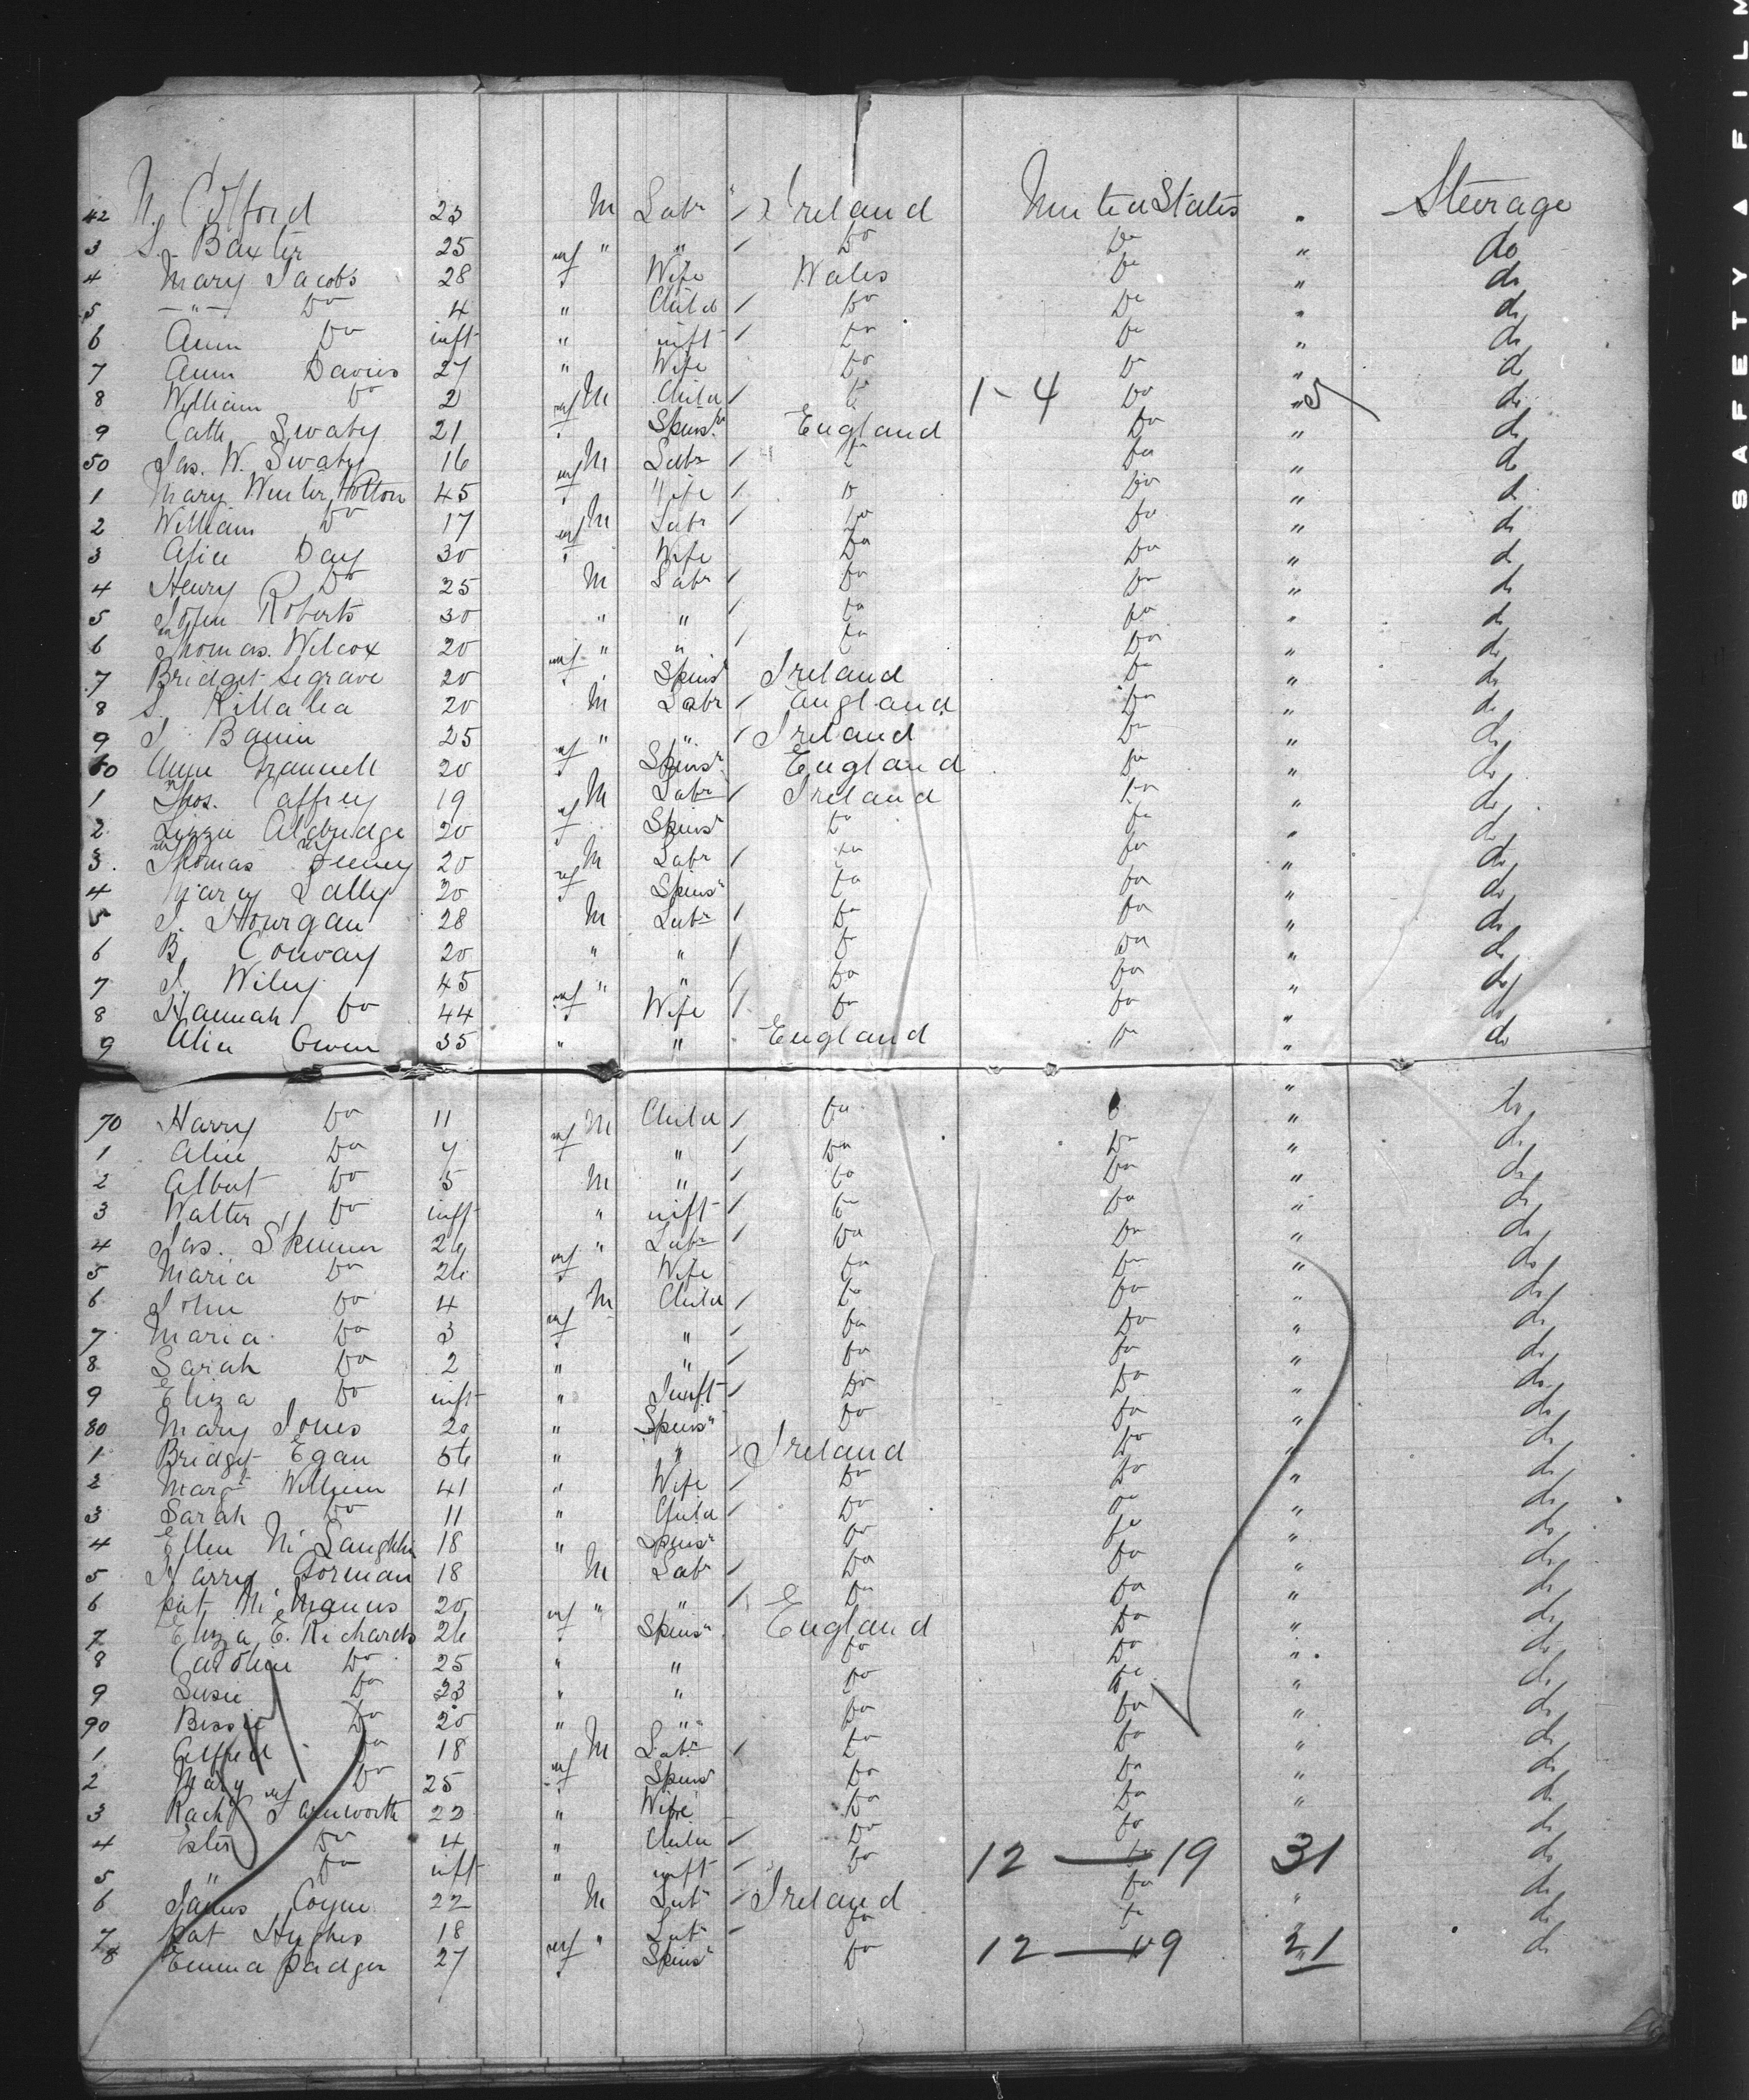 42 N. Cofford 23 M Labr Ireland United States " Steerage
3 S. Baxter 25 " " Do Do " do
4 Mary Jacobs 28 f Wife Wales Do " do
5 — " — Do 4 " Child Do Do " do
6 Ann Do inft " inft Do Do " do
7 Ann Davies 27 " Wife Do Do " do
8 William Do 2 M Child Do 1-4 Do " 5 do
9 Cath Swaby 21 f Spinsr England Do " do
50 Jas. W. Swaby 16 M Labr Do Do " do
1 Mary Winterbottom 45 f Wife Do Do " do
2 William Do 17 M Labr Do Do " do
3 Alice Day 30 f Wife Do Do " do
4 Henry Do 25 M Labr Do Do " do
5 John Roberts 30 " " Do Do " do
6 Thomas. Wilcox 20 " " Do Do " do
7 Bridget Segrave 20 f Spins Ireland Do " do
8 S. Killalea 20 M Labr England Do " do
9 J 25 " " Ireland Do " do
60 Anne Grannell 20 f Spinsr England Do " do
1 Thos. Caffrey 19 M Labr Ireland Do " do
2 Lizzie Aldbridge 20 f Spinsr Do Do " do
3. Thomas Feeney 20 M Labr Do Do " do
4 Mary Lally 20 f Spinsr Do Do " do
5 J. Hourgan 28 M Labr Do Do " do
6 B. Conway 20 " " Do Do " do
7 J. Wiley 45 " " Do Do " do
8 Hannah Do 44 f Wife Do Do " do
9 Alice Owen 35 " " England Do " do
70 Harry Do 11 M Child Do " do
1 Alice Do 7 f " Do Do " do
2 Albert Do 5 M " Do Do " do
3 Walter Do inft " inft Do Do " do
4 Jas. Skinner 26 " Labr Do Do " do
5 Maria Do 26 f Wife Do Do " do
6 John Do 4 M Child Do Do " do
7 Maria Do 3 f " Do Do " do
8 Sarah Do 2 " " Do Do " do
9 Eliza Do inft " Inft Do Do " do
80 Mary Jones 20 " Spinsr Do Do " do
1 Bridget Egan 56 " " Ireland Do " do
2 Margt 41 " Wife Do Do " do
3 Sarah Do 11 " Child Do Do " do
4 Ellen McLaughlin 18 " Spinsr Do Do " do
5 Harry Gorman 18 M Labr Do Do " do
6 Pat McManus 20 " " Do Do " do
7 Eliza E. Richards 26 f Spinsr England Do " do
8 Caroline Do 25 " " Do Do " do
9 Susie Do 23 " " Do Do " do
90 Bessie Do 20 " " Do Do " do
1 Alfred Do 18 M Labr Do Do " do
2 Mary Do 25 f Spinsr Do Do " do
3 Rachl 22 " Wife Do Do " do
4 Ester Do 4 " Child Do Do do
5 " Do inft " inft Do 12 — 19 31 do
6 James Coyne 22 M Labr Ireland Do " do
7 Pat Hughes 18 " Labr Do Do do
8 Emma Padger 27 f Spinsr Do 12 — 9 21 do
SAFETY FILM